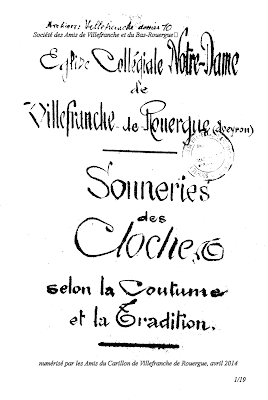 Archives Villefranche dossier 10
Société des Amis de Villefranche et du Bas-Rouergue
Eglise Collégiale Notre-Dame
de
Villefranche de Rouergue (Aveyron)
Sonneries
des
Cloches
selon la Coutume
et la Tradition.
numérisé par les Amis du Carillon de Villefranche de Rouergue, avril 2014
1/19